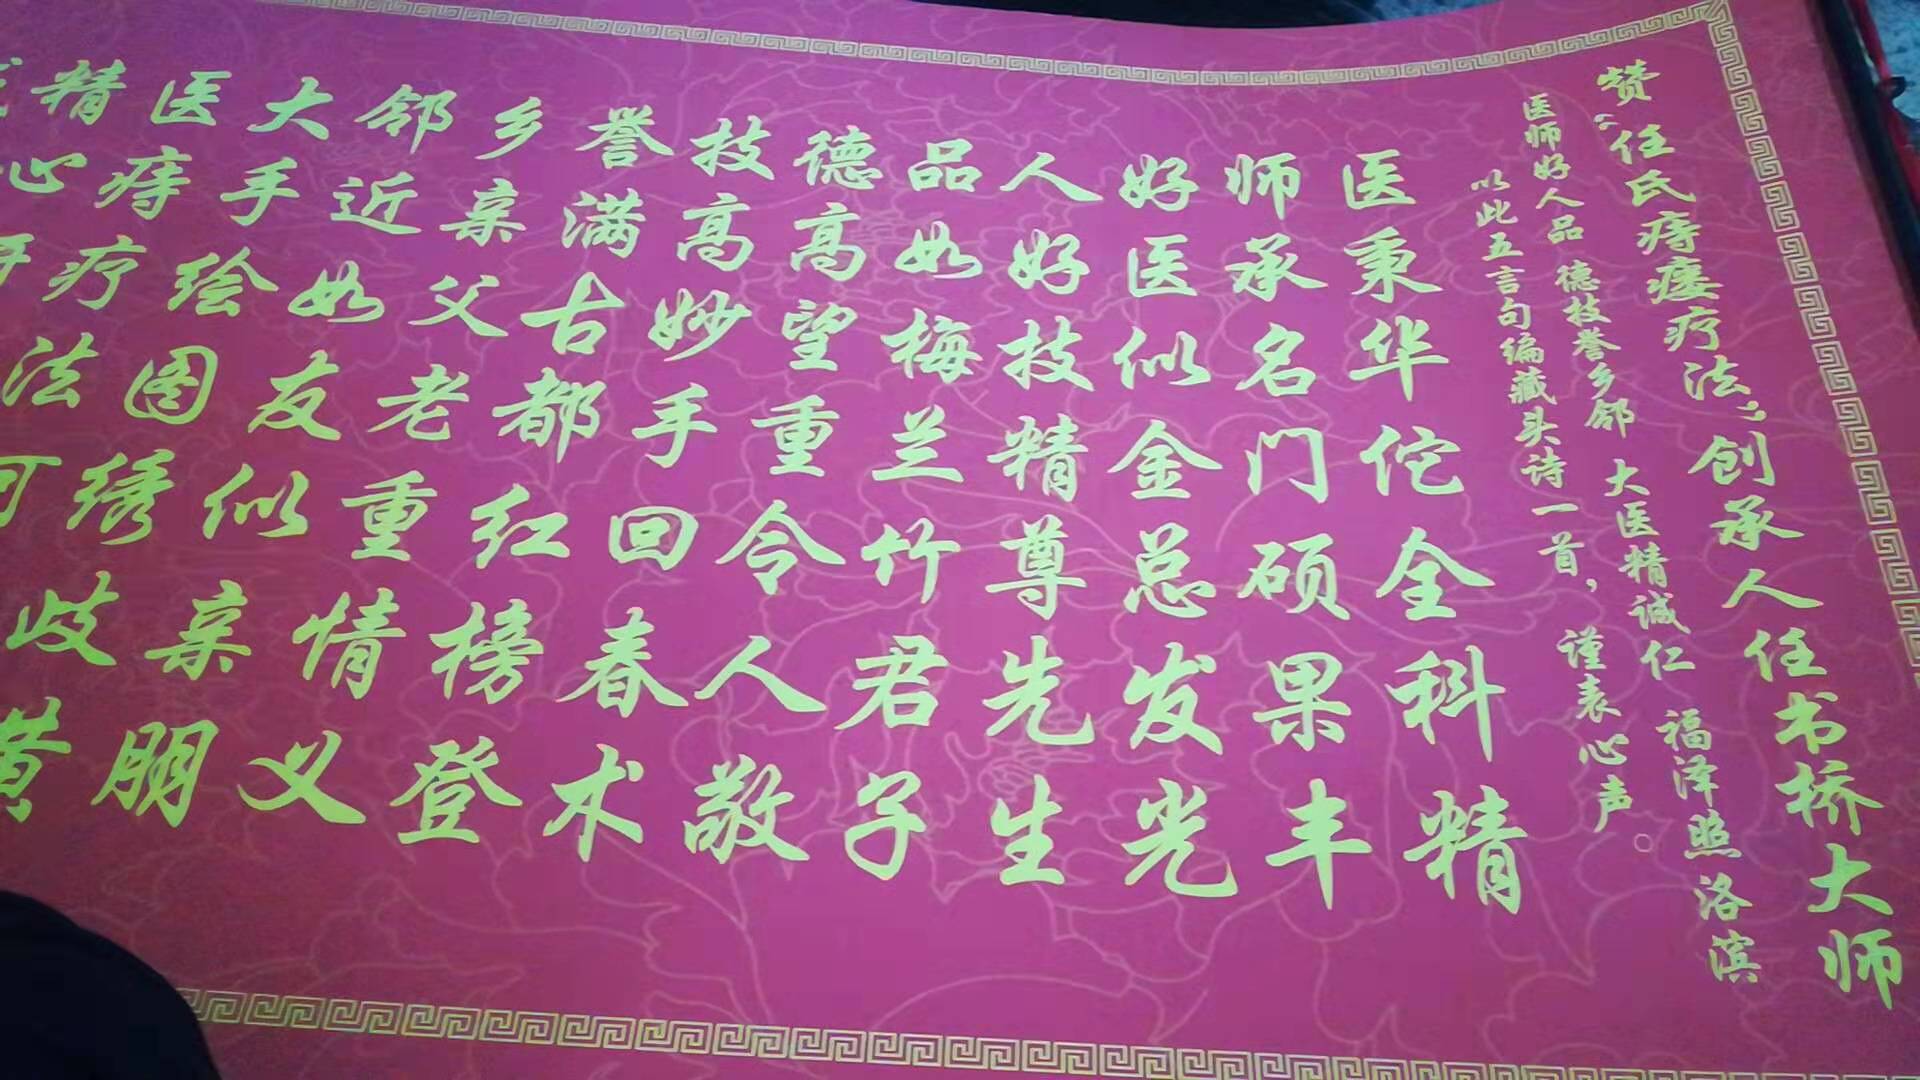 赞“任氏痔瘘疗法”创承人任书桥大师
医师好人品 德技誉乡邻 大医精诚仁 福泽照洛滨
以此五言句编藏头诗一首，谨表心声。
医秉华佗全科精
师承名门硕果丰
好医似金总发光
人好技精尊先生
品如梅兰竹君子
德高望重令人敬
技高妙手回春术
誉满古都红榜登
乡亲父老重情义
邻近如友似亲朋
大手绘图绣歧黄
医痔疗法可
精心